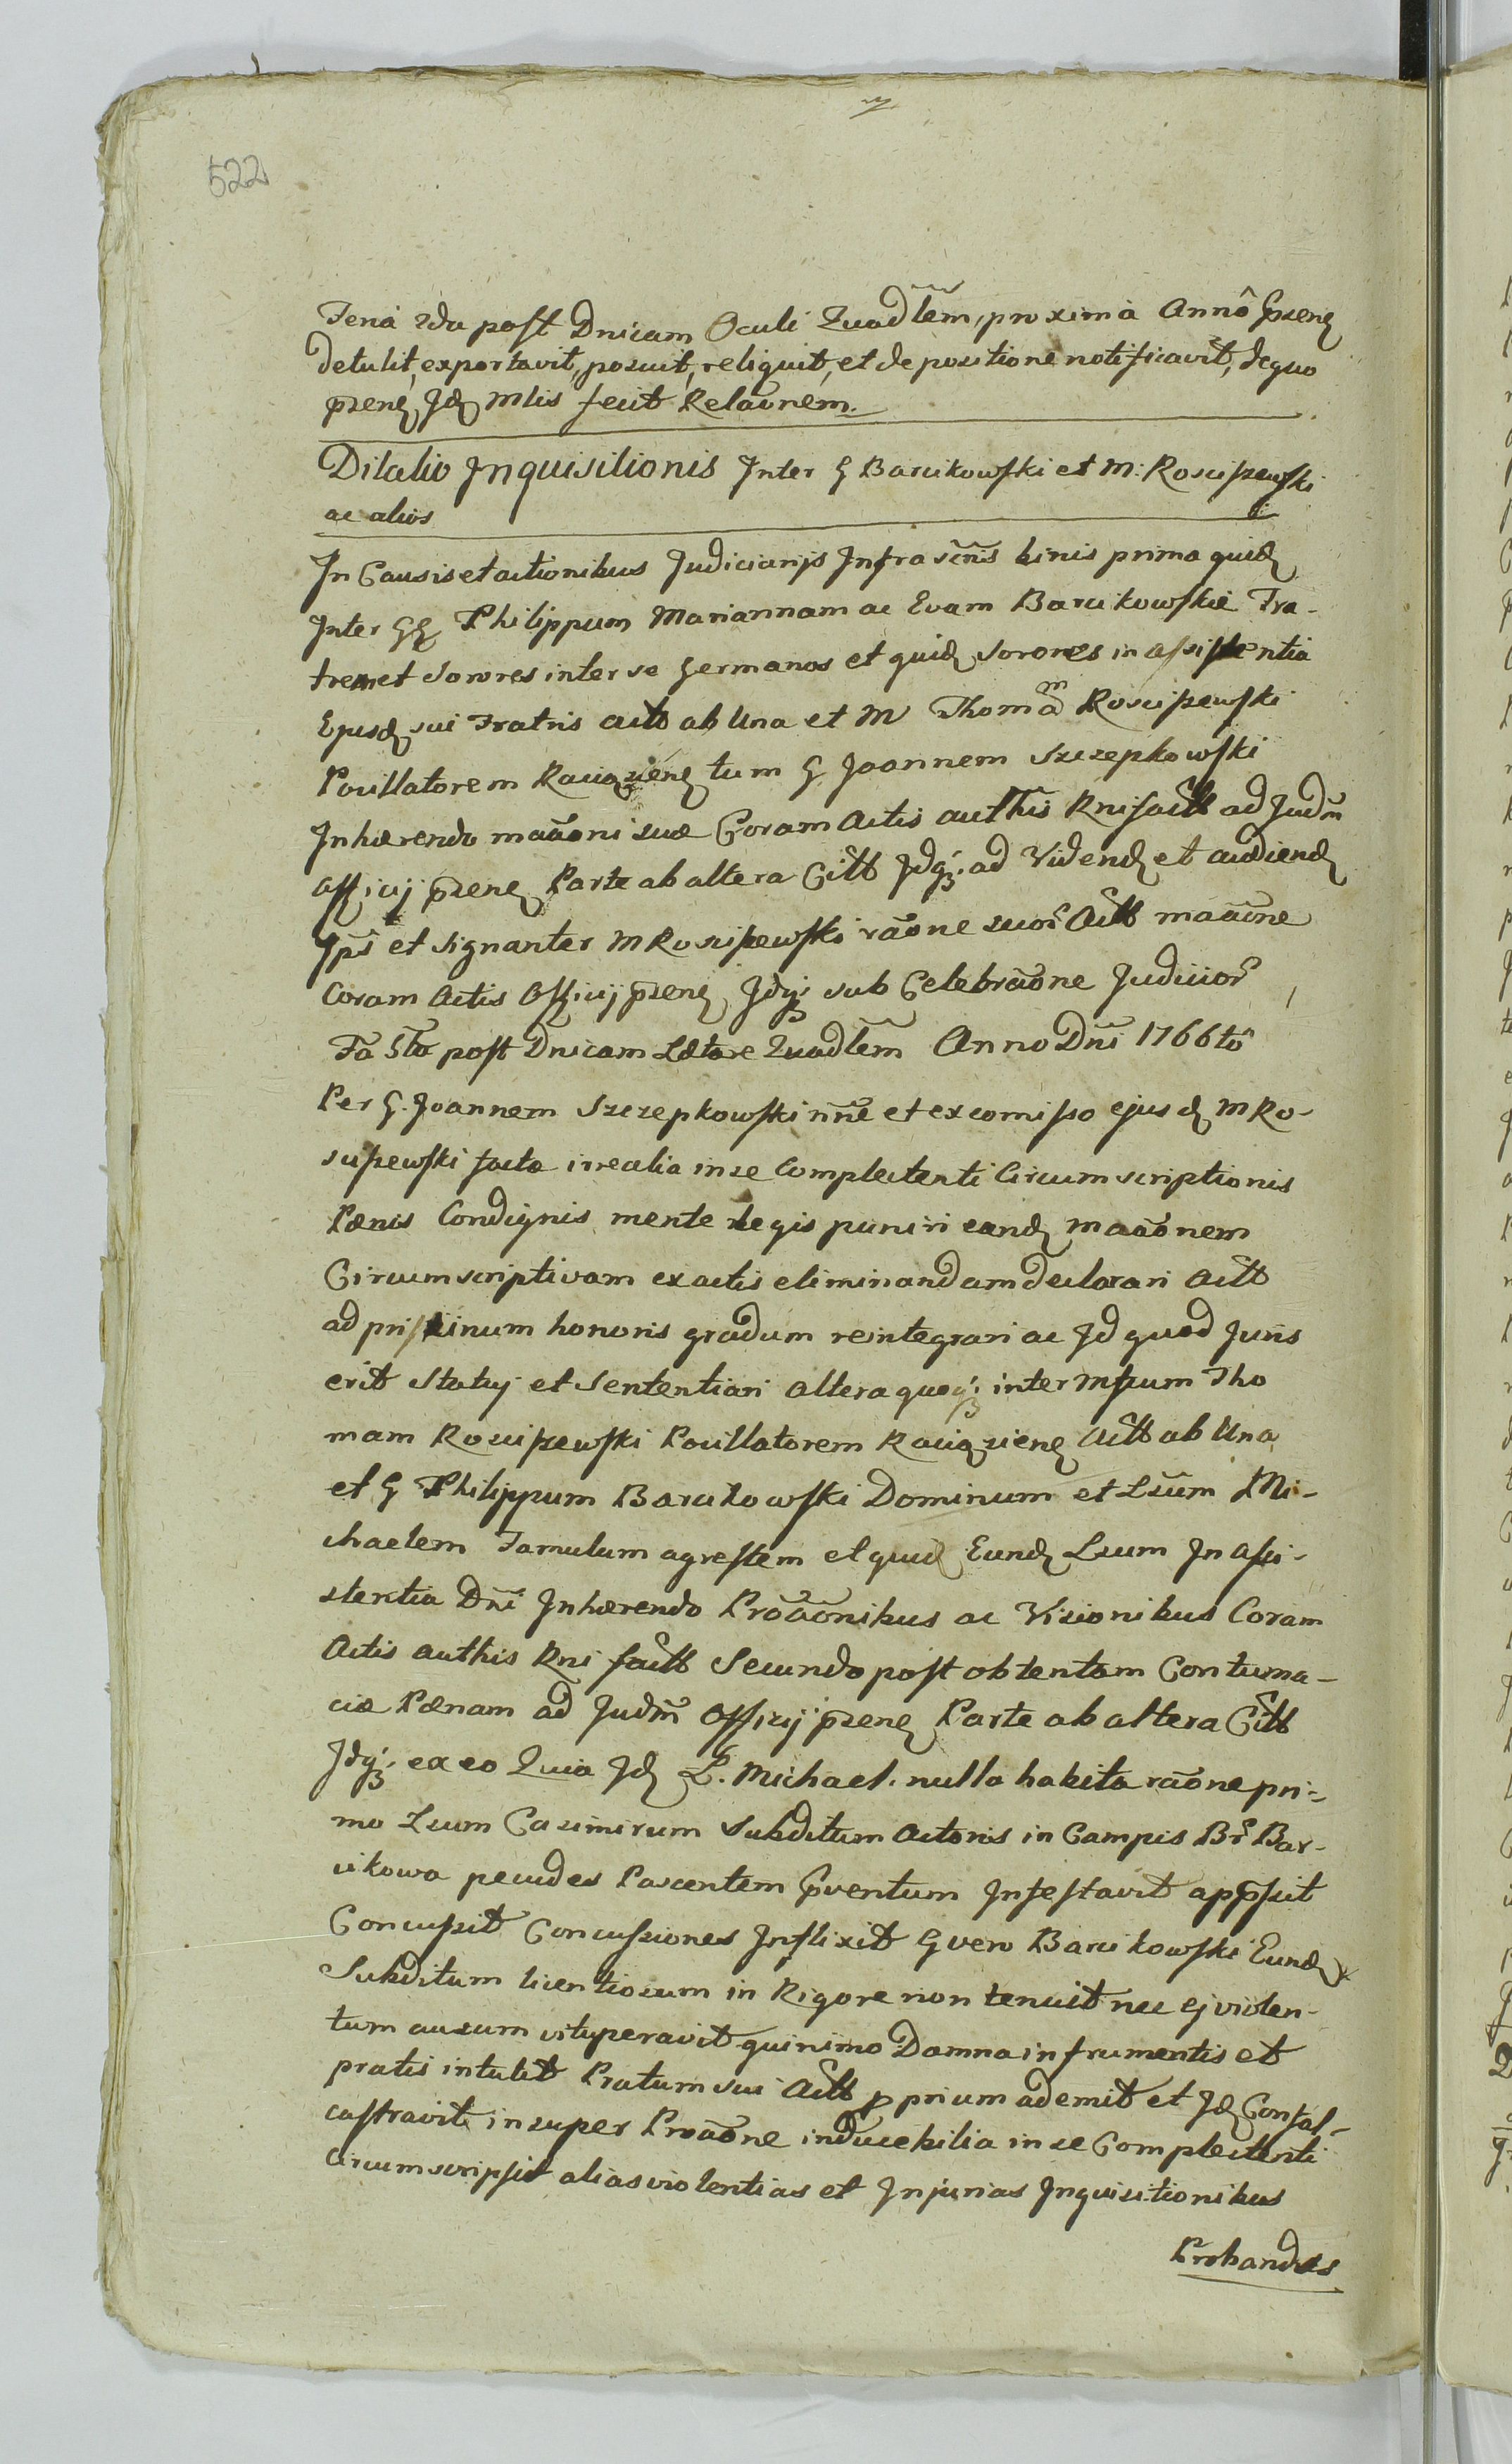 522
Feria 2da post Dnicam Oculi Quadlem, proximà Annô Przen
detulit, exportavit, posuit, reliquit, et de positione notificavit, de quo
przen Jd Mlis fecit Relaōnem.
Dilatio Inquisitionis Inter G Barcikowski et M: Rosciszewski
ac alios
In Causis et actionibus Judiciarijs Infrascrīis binis prima quid
Inter GG Philippum Mariannam ac Evam Barcikowskie Fra-
trem et Sorores inter se Germanos et quid Sorores in assistentia
Ejusd sui Fratris actt ab Una et M Thomam Rosciszewski
Pocillatorem Raciązien tum G Joannem Szczepkowski
Inhærendo maāoni suæ Coram Actis authis Rni factt ad Judm
officij przen Parte ab altera Citt Jdq; ad Videnđ et audiend
Ipŝ et signanter M Rosciszewski rāone suor Actt maāone
Coram Actis Officij przen Jdq; sub Celebrāone Judicior
Fa 5ta post Dnicam Lætare Quadlem Anno Dni 1766tô
Per G. Joannem Szczepkowski nne et ex comisso ejusd M Ro-
sciszewski facta irrealia in se complectenti Circumscriptionis
Pænis Condignis mente Legis puniri eand maāonem
Circumscriptivam ex actis eliminandam declarari Actt
ad pristinum honoris gradum reintegrari ac Jd quod Juris
erit Statuj et Sententiari Altera quoq; inter Mfcum Tho
mam Rosciszewski Pocillatorem Raciązien Actt ab Una
et G Philippum Barcikowski Dominum et Lsum Mi-
chaelem Famulum agrestem et quid Eund Lsum In assi-
stentia Dni Inhærendo Prōāonibus ac Visionibus Coram
Actis authis Rni factt Secundo post obtentam Contuma-
ciæ Pænam ad Judm Officij przen Parte ab altera Citt
Jdq; ex eo Quia Jd L. Michael. nulla habita rāone pri-
mo Lsum Casimirum Subditum Actoris in Campis Br Bar-
cikowa pecudes Pascentem Pventum Infestavit appssit
Concussit Concussiones Inflixit G vero Barcikowski Eund
Subditum licentiosum in Rigore non tenuit nec ej violen-
tum ausum vituperavit quinimo Damna in frumentis et
pratis intulit Pratum sui Actt pprium ademit et Jd Confal-
castravit insuper Prōāone inducibilia in se Complectenti
Circumscripsit alias violentias et Injurias Inquisitionibus
Probandas